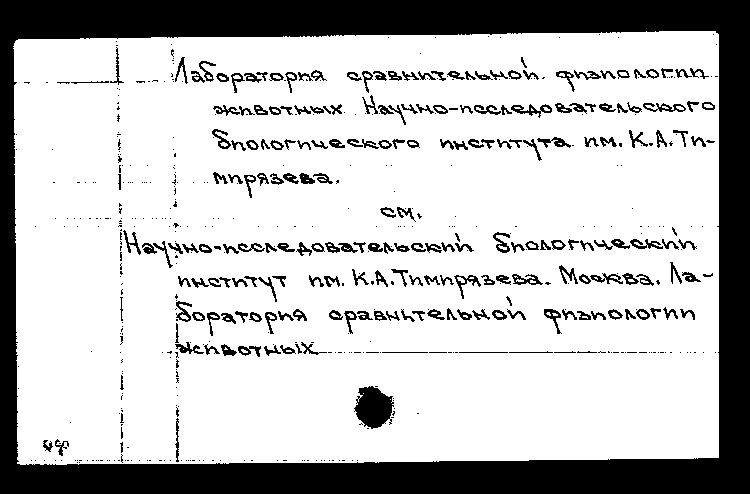 Лаборатория сравнительной физиологии
животных Научно-исследовательского
биологического института им. К.А. Ти-
мирязева.
см.
Научно-исследовательский биологический
институт им. К.А. Тимирязева. Москва. Ла-
боратория сравнительной физиологии
животных